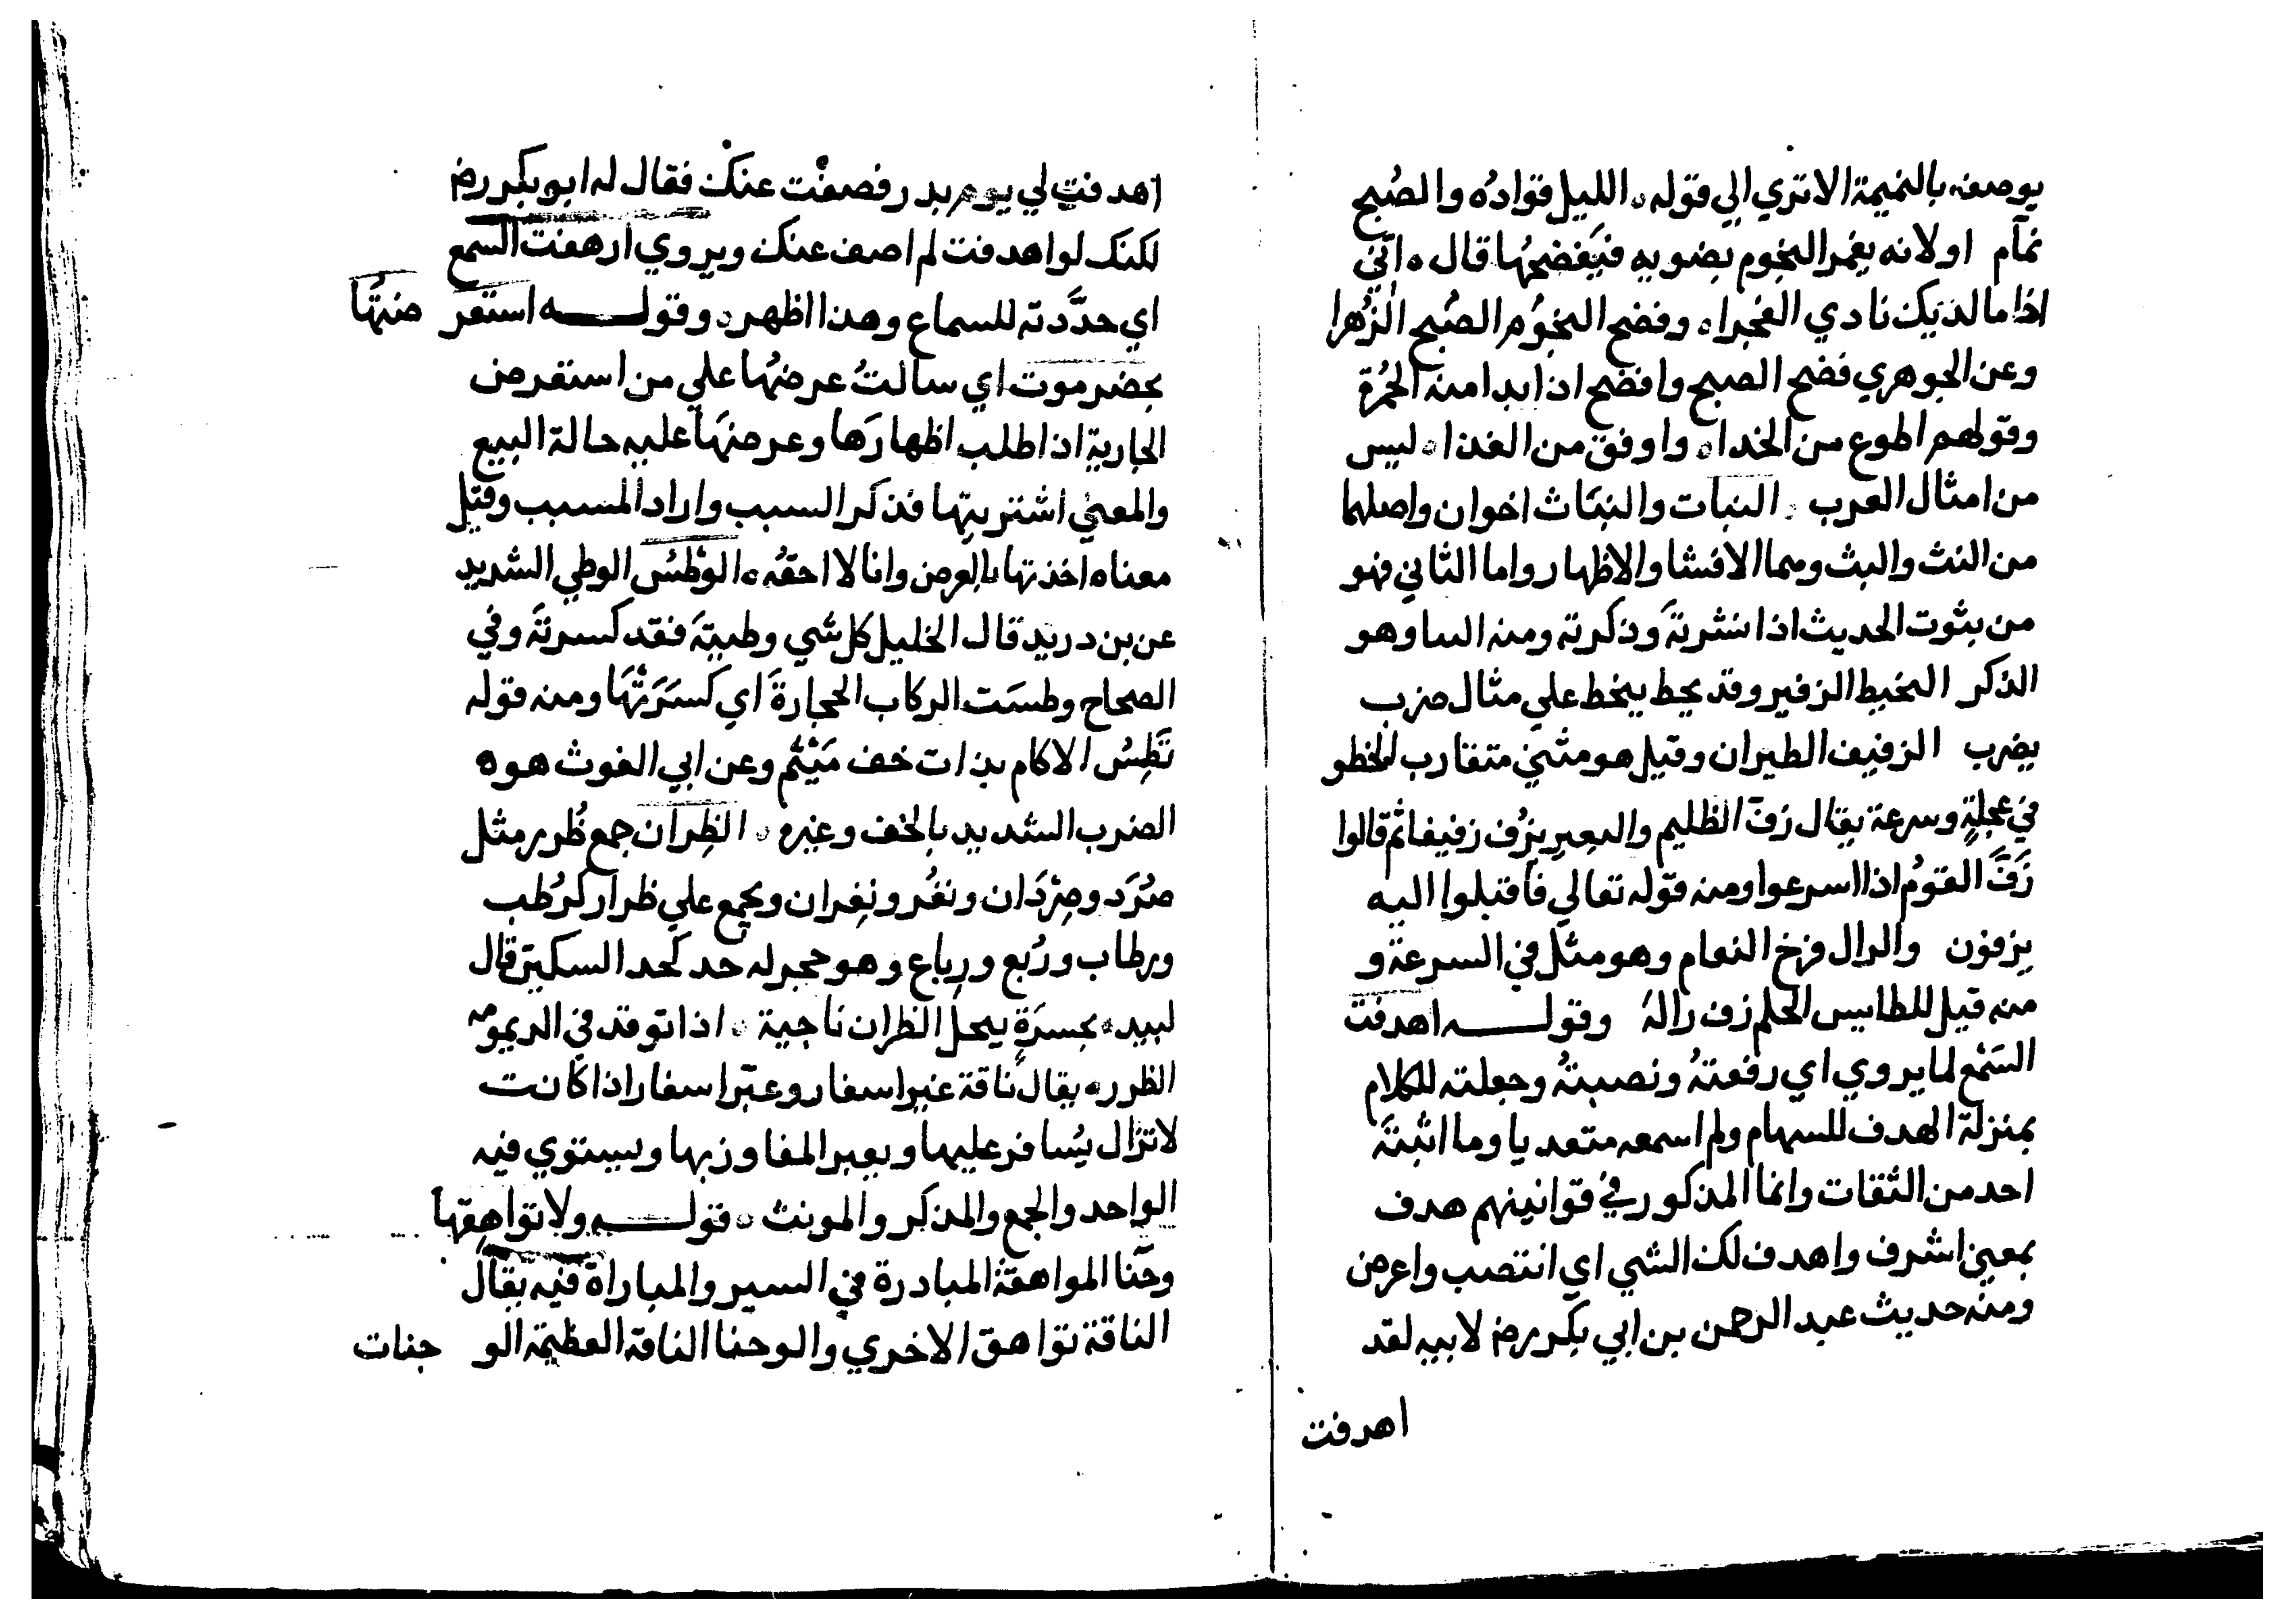 يوصف بالنميمة الا تري الي قوله ٥ الليل قوادُه والصُبح
نمآم اولانه يغمر النجوم بضويه فيَفضحُها قال ٥ اِنّي
اذا ما الديَك نادي الفجرا ٥ وفضح النجوُم الصُبح الزُهرا
وعن الجوهري فضح الصبح وافضح اذا بدا منه الحُمرة
وقولهم اطوع من الخدا ٥ واوفق من الغدا ٥ ليس
من امثال العرب ٥ النبات والنَثاث اخوان واصلهما
من النث والبث وهما الافشا والاظهار واما الثاني فهو
من بثوت الحديث اذا نشرتَه وذكرته ومنه السا وهو
الذكر النخيط الزفير وقد نحط ينحط علي مثال ضرب
يضرب الزفيف الطيران وقيل هو مشي متقارب الخطو
في عجلةٍ وسرعة يقال زفَ الظليم والبعير يزُف زفيفا ثم قالوا
زَفَّ القوُم اذا اسرعوا ومنه قوله تعالي فاقبلوا اليه
يزفون والرال فرخ النعام وهو مثل في السرعة و
منه قيل للطايس الحلم زف راله وقولــه اهدفت
السَمْع لما يروي اي رفعتهُ ونصبتهُ وجعلته للكلام
بمنزلة الهدف للسهام ولم اسمعه متعديا وما اثبتَه
احد من الثقات وانما المذكور في قوانينهم هدف
بمعني اشرف واهدف لك الشي اي انتصب واعرض
ومنه حديث عبد الرحمن بن ابي بكر رض لابيه لقد
اهدفت
اهدفت لي يوم بدر فصفْت عنكْ فقال له ابو بكر رض
لكنك لو اهدفت لم اصف عنك ويروي ارهفت السمع
اي حدَّدته للسماع وهذا اظهر ٥ وقولــه استعر ضتهَا
بحضرموت اي سالتُ عرضهُا علي من استعرض
الجارية اذا طلب اظهارَها وعرضهَا عليه حالة البيع
والمعني اشتريتها فذكر السبب واراد المسبب وقيل
معناه اخذتها بالعرض وانا لا احقه ٥ الوَطْسُ الوطي الشديد
عن بن دريد قال الخليل كل شي وطيتَه فقد كسرتَه وفي
الصحاح وطسَت الركاب الحجارةَ اي كسَرَتْهَا ومنه قوله
تَطِسُ الاكام بذات خف مَيْثم وعن ابي الغوث هوه
الضرب الشديد بالخف وغيره ٥ الظِران جمع ظُرر مثل
صُرَد وصِرْدَان ونغُر ونِغران ويجمع علي ظرار كرُطب
ورطاب ورُبع ورِباع وهو حجر له حد كحد السكين قال
لبيد ٥ بجسرَةٍ ينجل الظران ناجية ٥ اذا توقد في الديمومه
الظرر ٥ يقال ناقة عُبر اسفار وعبَر اسفار اذا كانت
لا تزال يُسافر عليها ويعبر المفاوز بها ويستوي فيه
الواحد والجمع والمذكر والمونث ٥ قولــه ولا تواهِقها
وجَنا المواهقة المبادرة في السير والمباراة فيه يقال
الناقة تواهق الاخري والوجنا الناقة العظيمة الو جنات